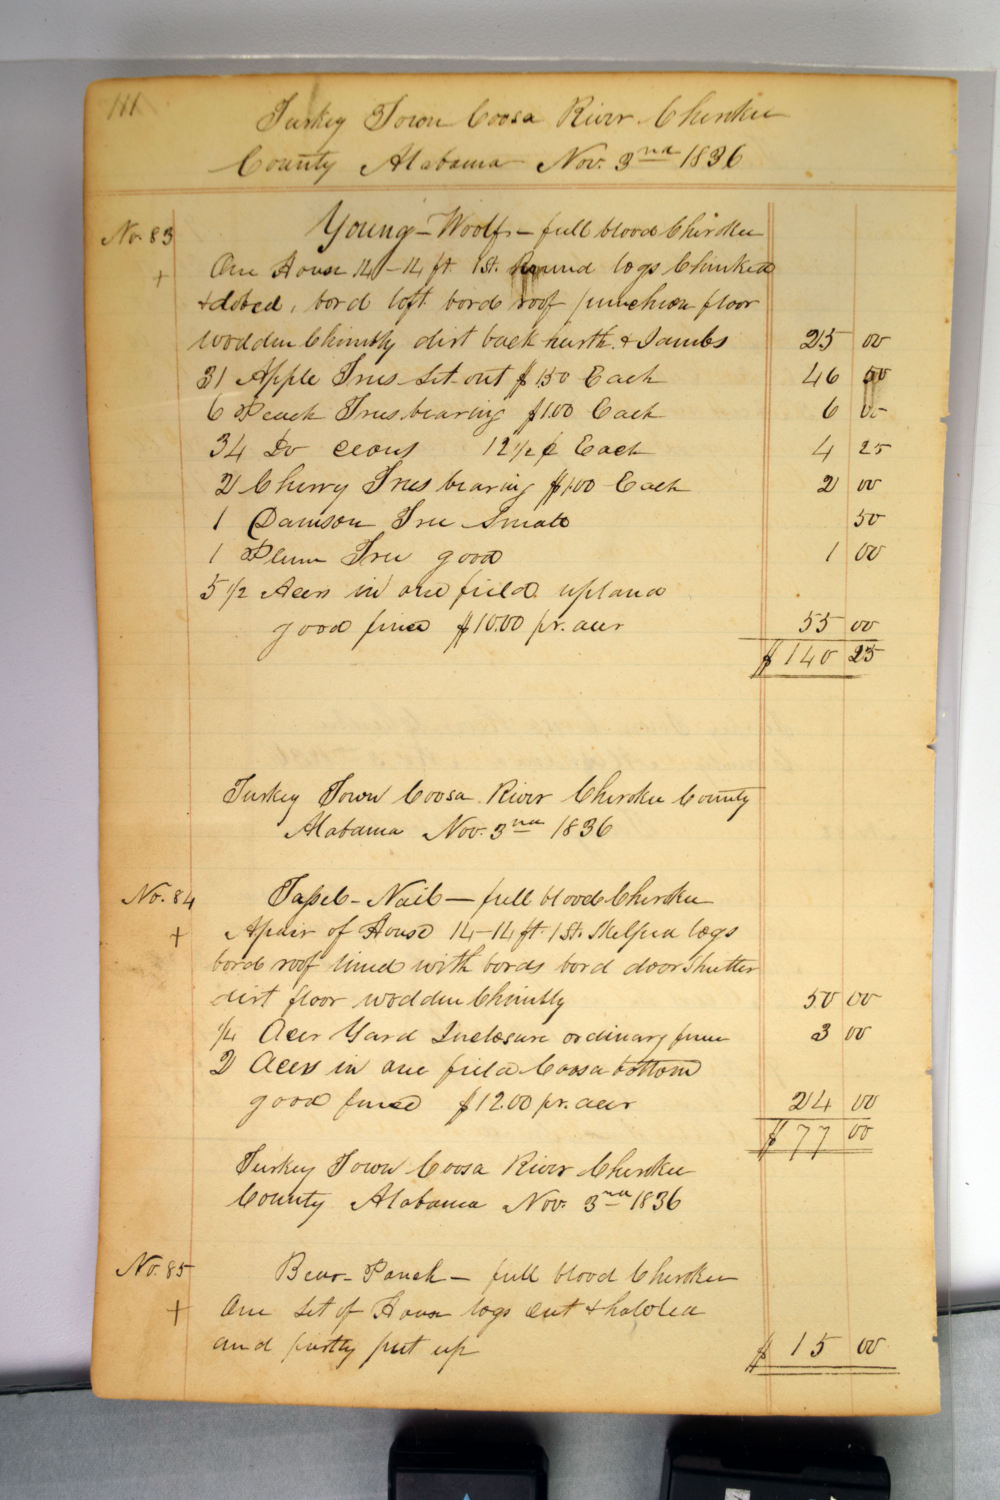 111
Turkey Town Coosa River Cherokee
County Alabama Nov. 3nd 1836
No. 83 Young-Woolf - full blood Cherokee
+ One House 14-14 ft. 1 St. Round logs Chinked
& dobed, bord loft bord roof puncheon floor
wodden Chimbly dirt back hurth & Jambs 25 00
31 Apple Trees set out $1.50 Each 46 50
6 Peach Trees bearing $1.00 Each 6 00
34 Do 12 1/2 ¢ Each 4 25
2 Cherry Trees bearing $1.00 Each 2 00
1 Damson Tree Small 50
1 Plum Tree good 1 00
5 1/2 Acers in one field upland
good fence $10.00 pr. acer 55 00
$ 140 25
Turkey Town Coosa River Cherokee County
Alabama Nov. 3nd 1836
No. 84 Tassel-Nail - full blood Cherokee
+ A pair of House 14-14 ft 1 St. Skelped logs
bord roof lined with bords bord door Shutter
dirt floor wodden Chimbly 50 00
1/4 Acer Yard Inclosure ordinary fence 3 00
2 Acers in one field Coosa bottom
good fence $12.00 pr. acer 24 00
$ 77 00
Turkey Town Coosa River Cherokee
County Alabama Nov. 3nd 1836
No. 85 Bear-Panch - full blood Cherokee
+ One set of House logs cut & halled
and partly put up $ 15 00